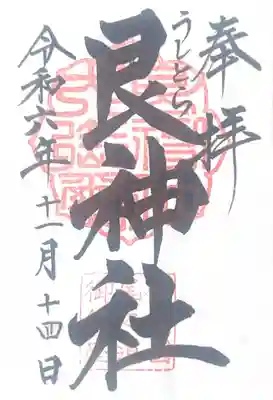 奉拝
うしとら
艮神社
令和六年十一月十四日